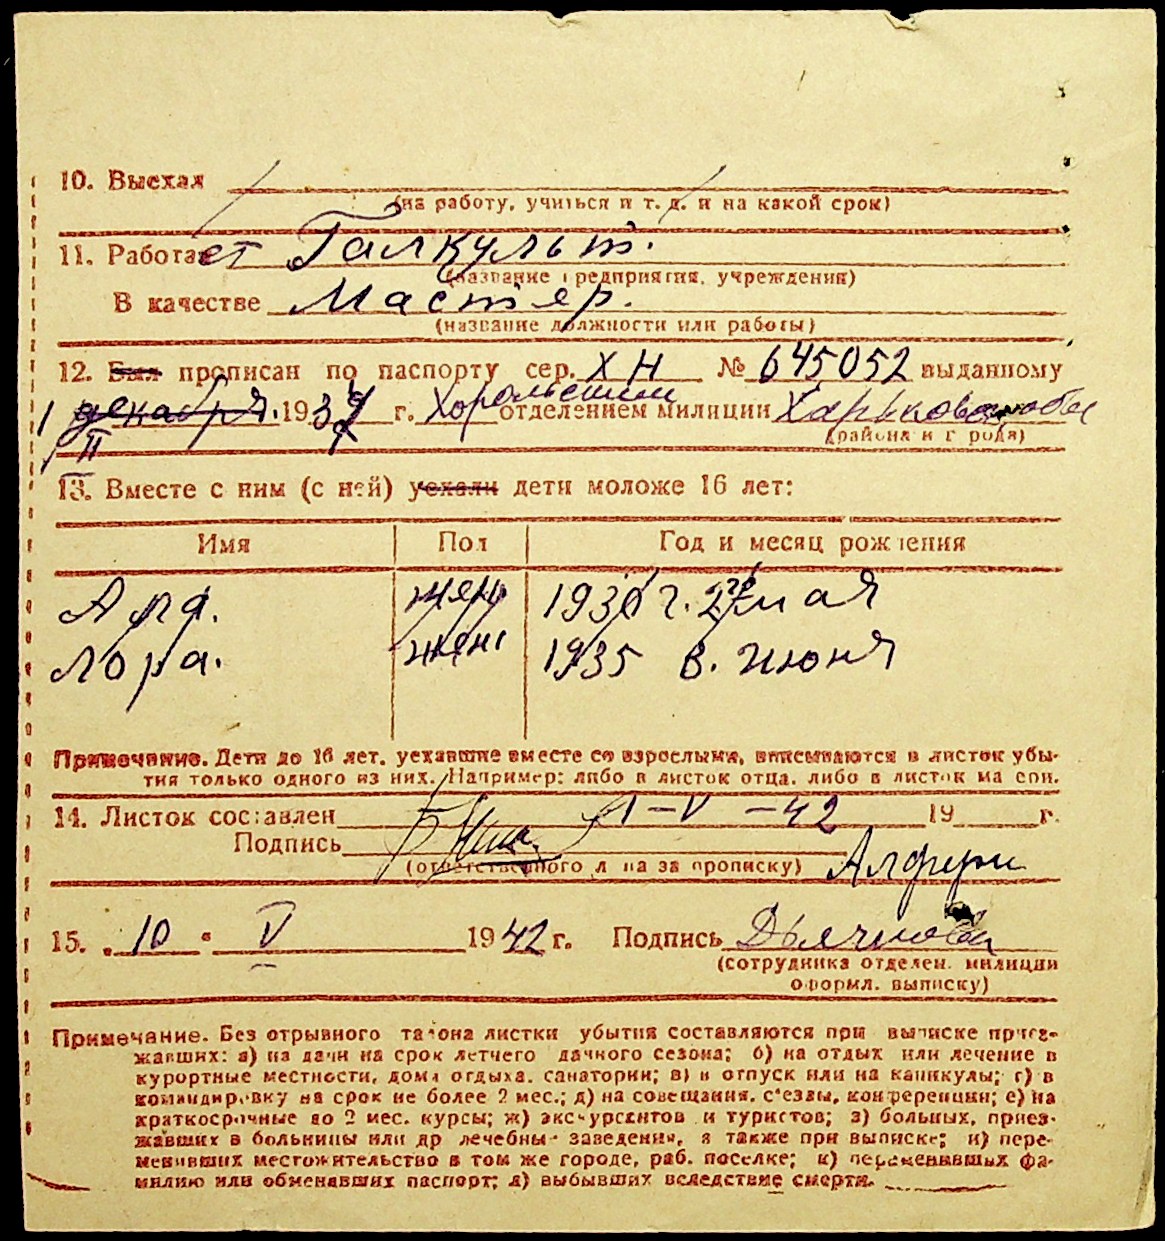 10. Выехал
(на работу, учиться и т. д. и на какой срок)
11. Работает Галкульт.
(название предприятия, учреждения)
В качестве Мастер.
(название должности или работы)
12. Был прописан по паспорту сер. ХН № 645052 выданному
1 декабря. 1937 г. Хорольским отделением милиции Харьковск. обл
II
(района и города)
13. Вместе с ним (с ней) уехали дети моложе 16 лет:
Имя Пол Год и месяц рождения
Ада. жен 1936 г. 27 мая
Лора. женс 1935 в. июня
Примечание. Дети до 16 лет, уехавшие вместе со взрослыми, вписываются в листок убы-
тия только одного из них. Например: либо в листок отца, либо в листок матери.
14. Листок составлен 1-V-42 19 г.
Подпись
(ответственного лица за прописку)
15. „10“ V 1942 г. Подпись
(сотрудника отделен. милиции
оформл. выписку)
Примечание. Без отрывного талона листки убытия составляются при выписке приез-
жавших: а) на дачи на срок летнего дачного сезона; б) на отдых или лечение в
курортные местности, дома отдыха, санатории; в) в отпуск или на каникулы; г) в
командировку на срок не более 2 мес.; д) на совещания, с'езды, конференции; е) на
краткосрочные до 2 мес. курсы; ж) экскурсантов и туристов; з) больных, приез-
жавших в больницы или др лечебные заведения, а также при выписке; и) пере-
менивших местожительство в том же городе, раб. поселке; к) переменивших фа-
милию или обменявших паспорт; л) выбывших вследствие смерти.